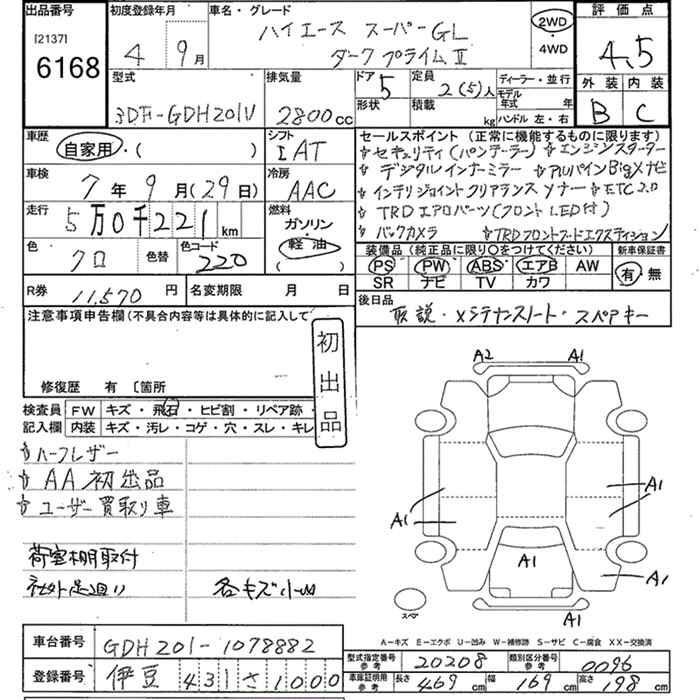 出品番号
[2137]
6168
初度登録年月
4 年 9 月
車名・グレード
ハイエース スーパーGL
ダークプライムⅡ
2WD
・
4WD
評価点
4.5
外装 内装
B C
型式
3DF-GDH201V
排気量
2800cc
ドア 5
形状
定員
2(5)人
積載
kg
ディーラー・並行
モデル
年式 年
ハンドル 左・右
車歴
自家用・( )
シフト
IAT
車検
7年9月(29日)
冷房
AAC
走行
5万0千221km
燃料
ガソリン
・
軽油
( )
色
クロ
色替
色コード
220
セールスポイント(正常に機能するものに限ります)
☆セキュリティ(パンテーラー) ☆エンジンスターター
☆デジタルインナーミラー ☆ALパインBigXナビ
☆インテリジェントクリアランスソナー ☆ETC2.0
☆TRDエアロパーツ(フロントLED付)
☆バックカメラ ☆TRDフロントフードエクステイション
装備品(純正品に限り○をつけてください)
新車保証書
PS PW ABS エアB AW
SR ナビ TV カワ
有・無
R券 11,570円
名変期限 月 日
後日品
取説・メンテナンスノート・スペアキー
注意事項申告欄(不具合内容等は具体的に記入して
初出品
修復歴 有〔箇所
検査員
記入欄
FW キズ・飛石・ヒビ割・リペア跡・
内装 キズ・汚レ・コゲ・穴・スレ・キレ
☆ハーフレザー
☆AA初出品
☆ユーザー買取り車
荷室棚取付
社外足廻り
各キズ小凹
A2 A1
A1
A1
A1
A1
A1
スペア
A-キズ E-エクボ U-凹み W-補修跡 S-サビ C-腐食 XX-交換済
車台番号
GDH201-1078882
登録番号
伊豆 431 さ 1000
型式指定番号
参考
20208
類別区分番号
参考
0096
車庫証明用
参考
長さ 469cm
幅 169cm
高さ 198cm